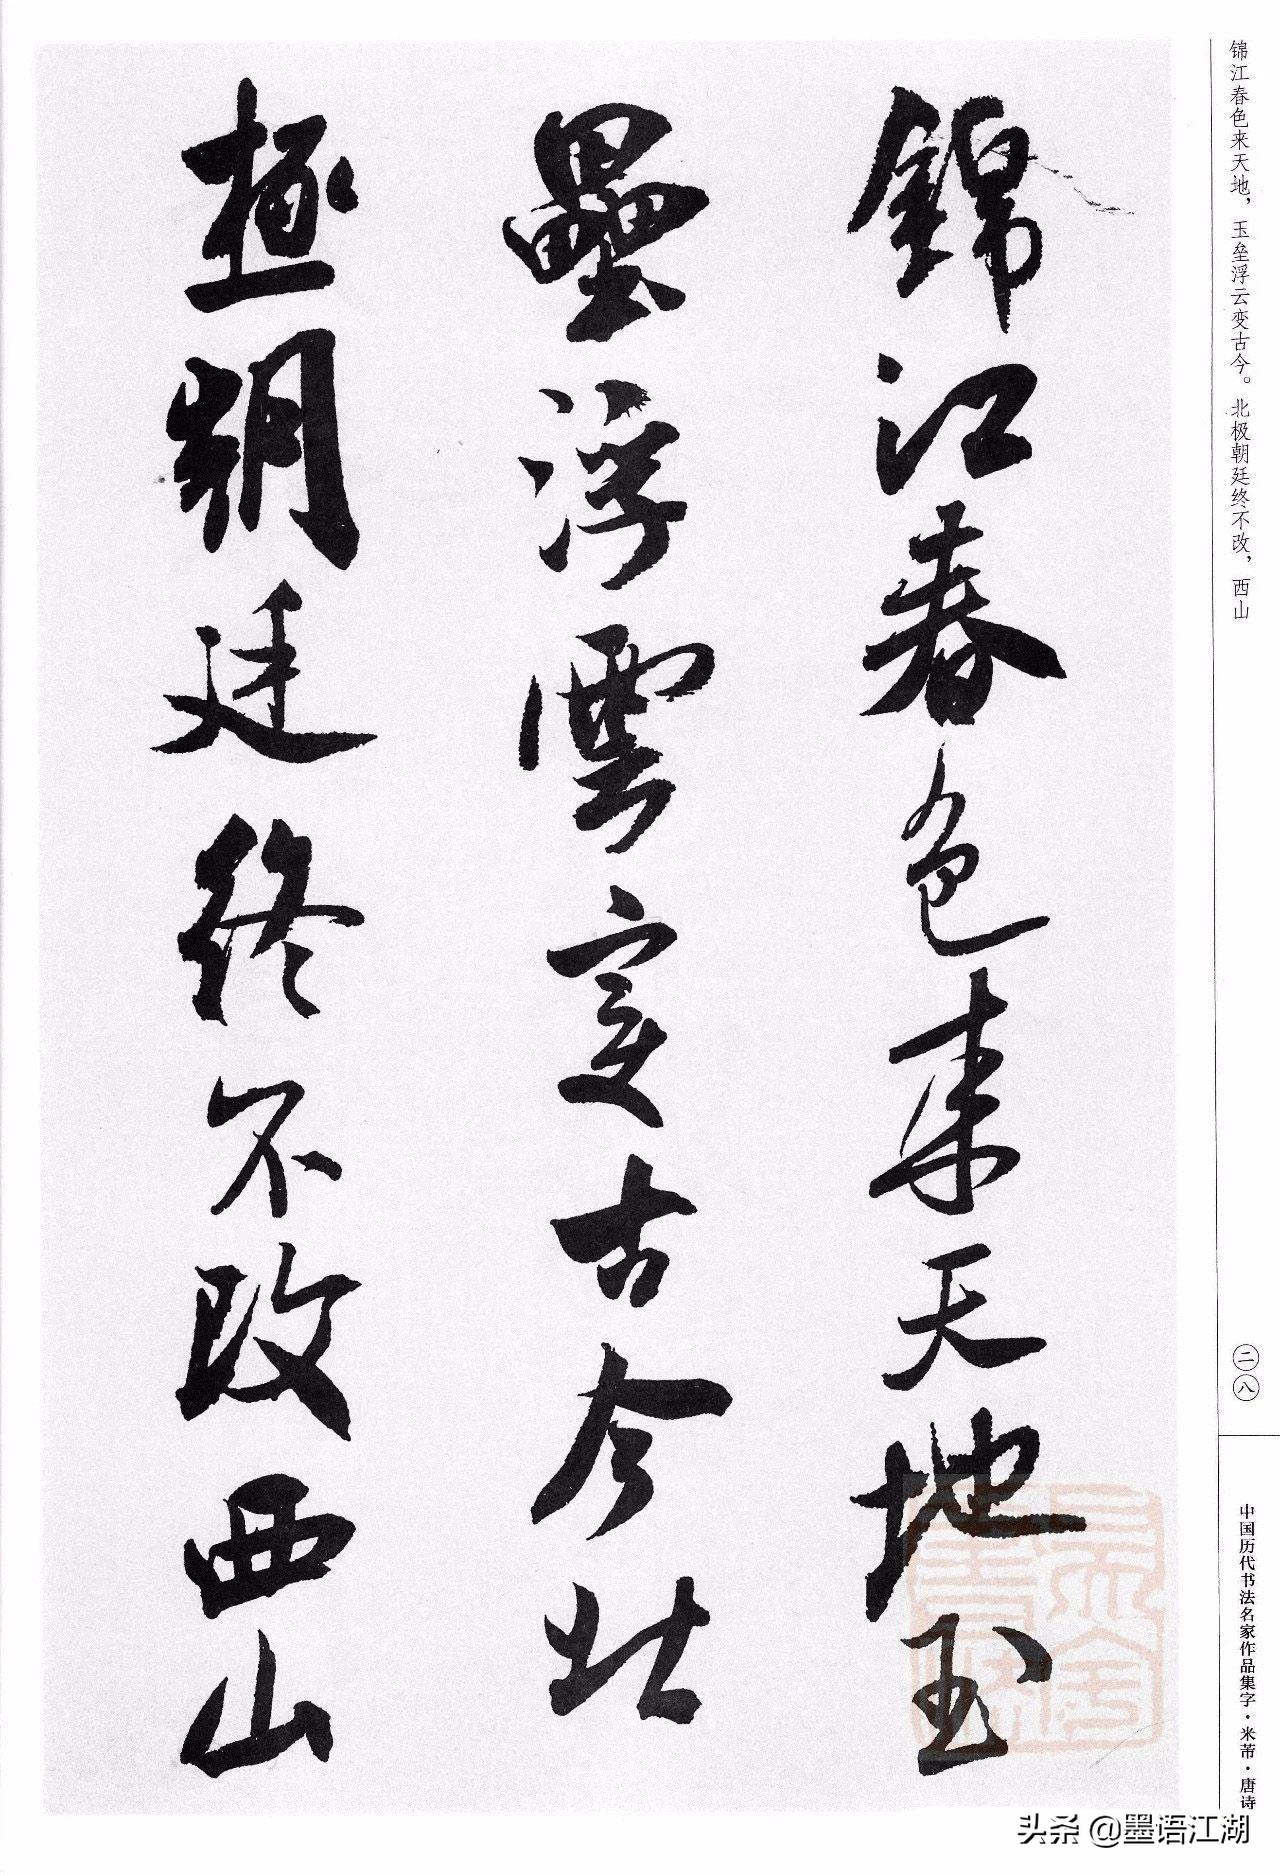 锦江春色来天地，玉垒浮云变古今。北极朝廷终不改，西山
錦江春色来天地玉
壘浮雲変古今北
極朝廷終不改西山
二八
中国历代书法名家作品集字·米芾·唐诗
头条 @墨语江湖